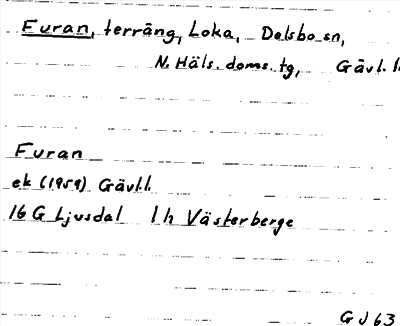 Furan, terräng, Loka, Delsbo sn,
N. Häls. doms. tg, Gävl. l.
Furan
ek (1959) Gävl.l.
16 G Ljusdal 1 h Västerberge
G J 63